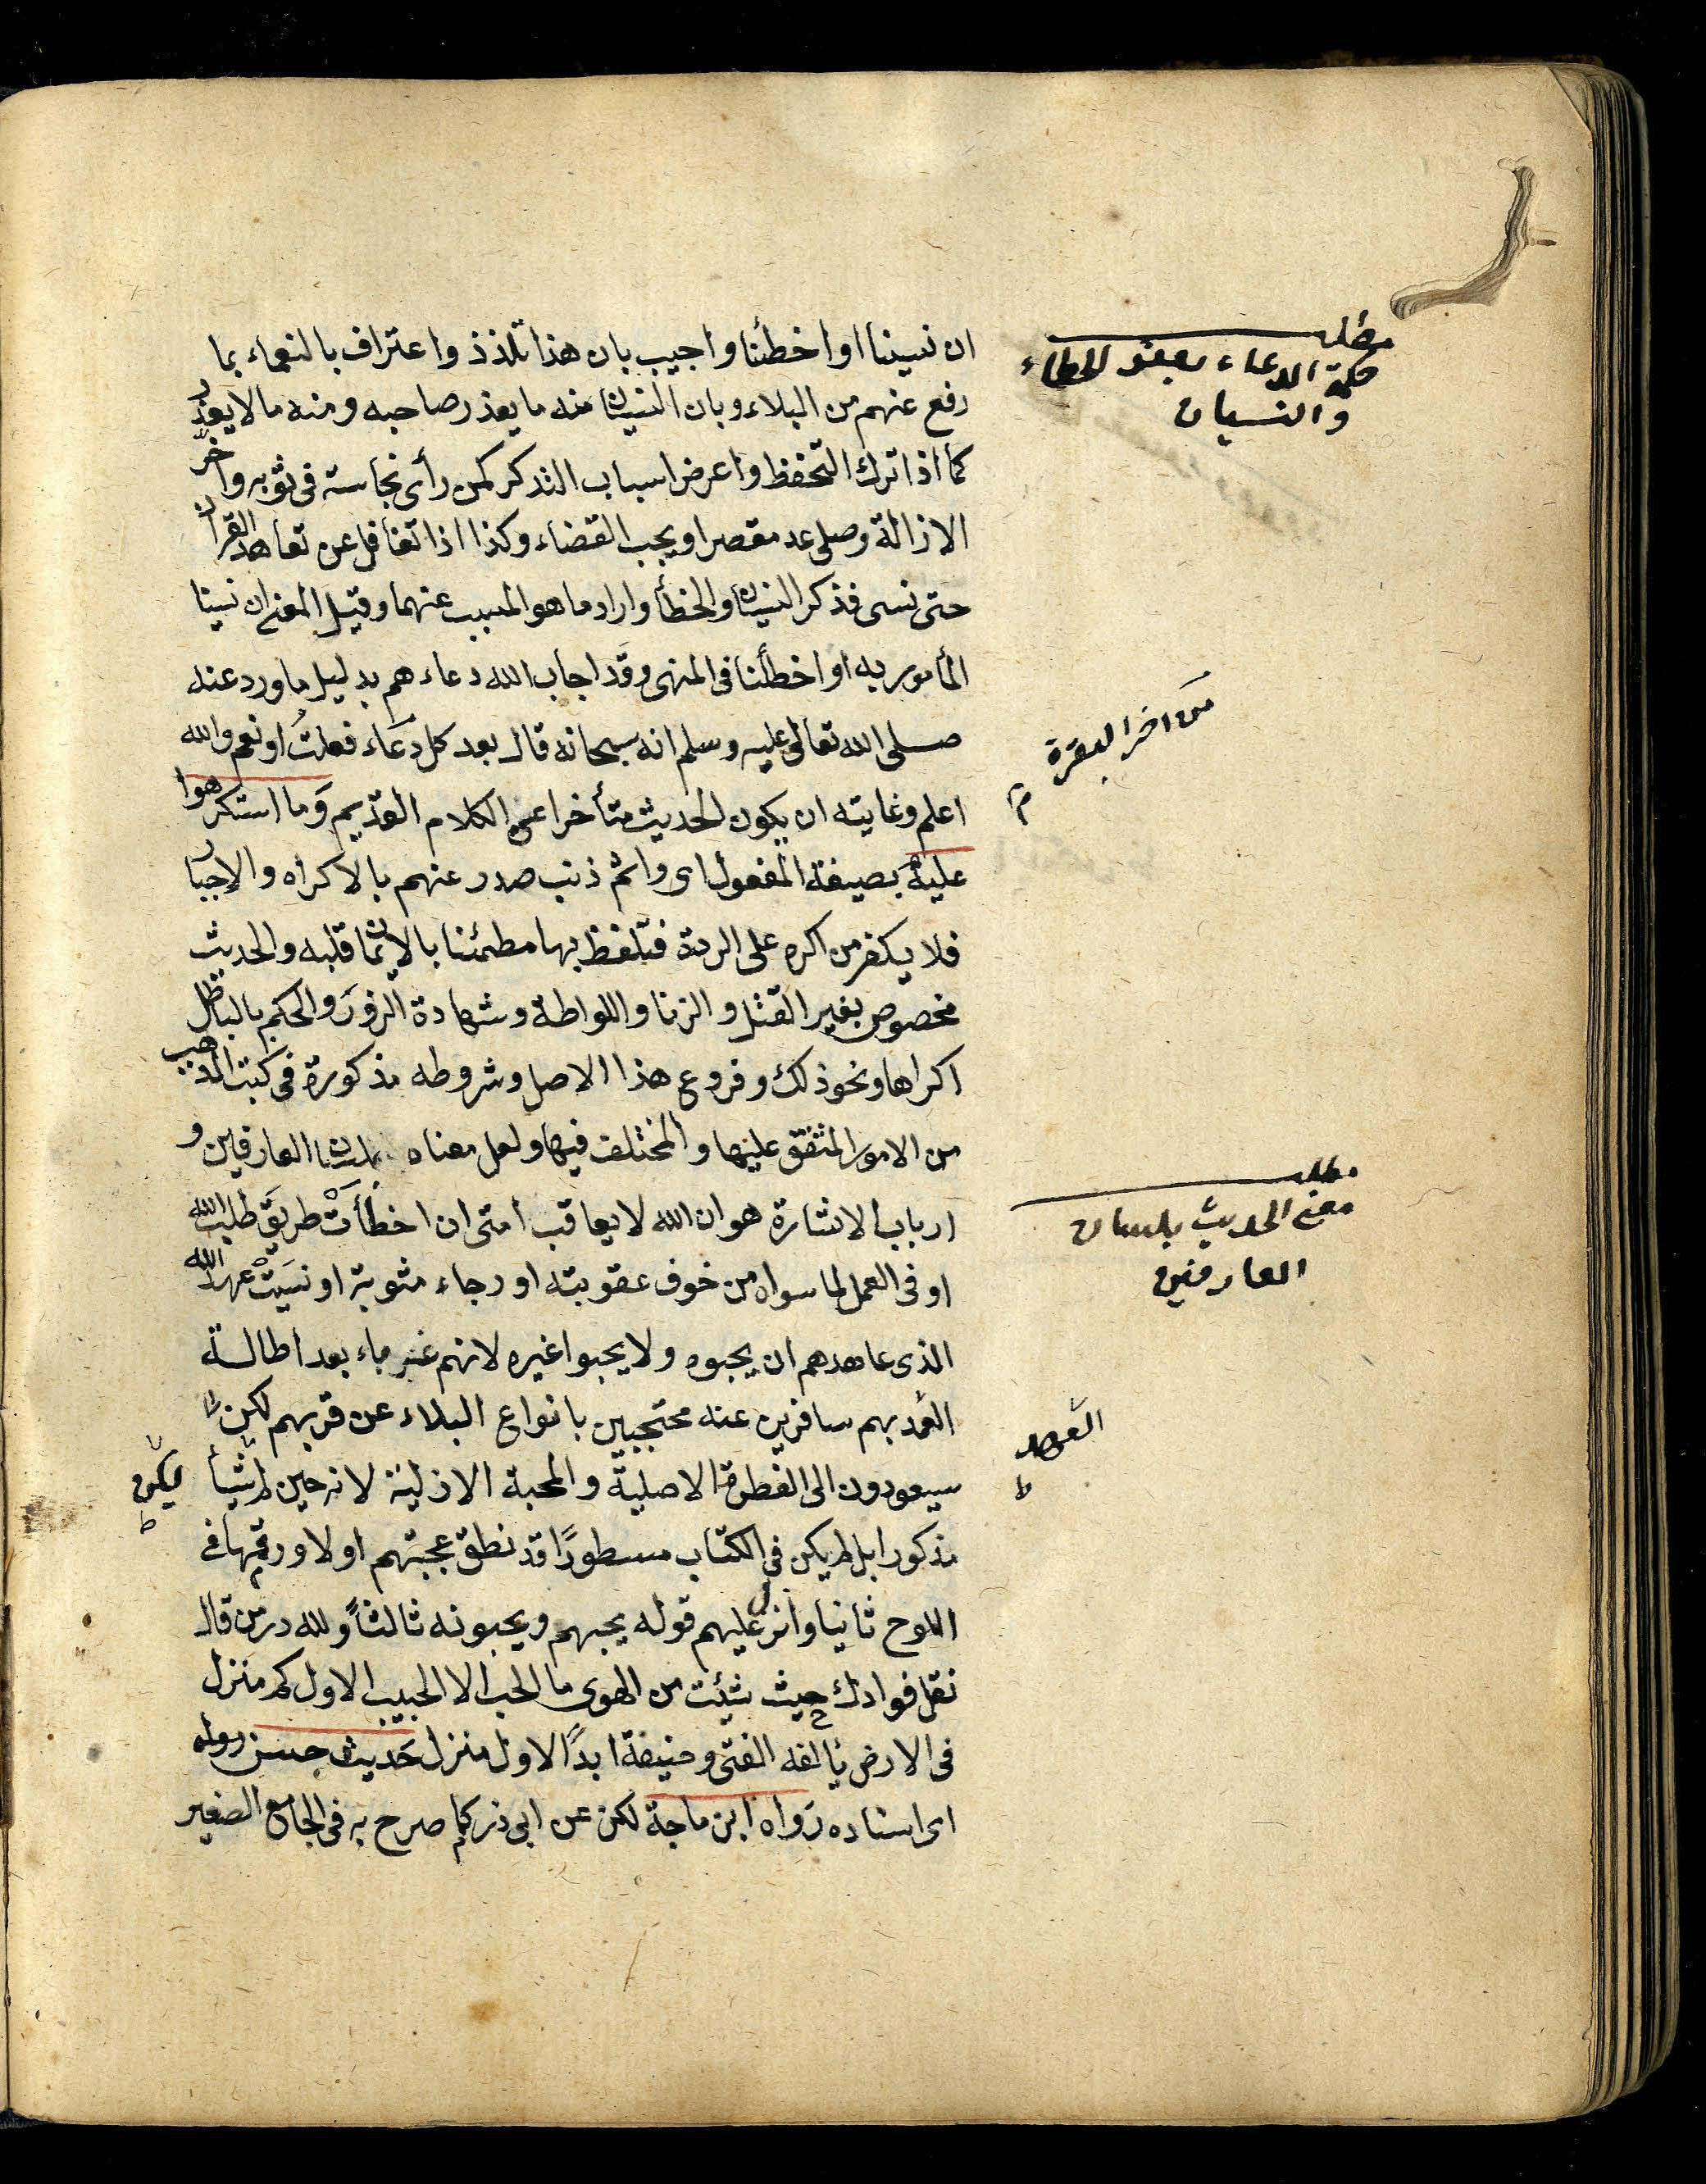 ان نسينا او اخطأنا واجيب بان هذا تلذذ واعتراف بالنعماء بما
رفع عنهم من البلاء وبان النسيان منه ما يعذر صاحبه ومنه ما لا يعذر
كما اذا ترك التحفظ واعرض اسباب التذكر كمن رأى نجاسة فى ثوبه واخر
الازالة وصلى عد مقصرا ويجب القضاء وكذا اذا تغافل عن تعاهد القرآن
حتى نسى فذكر النسيان والخطأ واراد ما هو المسبب عنهما وقيل المعنى ان نسينا
المأمور به او اخطأنا فى المنهى وقد اجاب الله دعاءهم بدليل ما ورد عنه
صلى الله تعالى عليه وسلم انه سبحانه قال بعد كل دعاء فعلت او نعم والله
اعلم وغايته ان يكون الحديث متأخرا عن الكلام القديم وما استكرهوا
عليه بصيغة المفعول اى واثم ذنب صدر عنهم بالاكراه والاجبار
فلا يكفر من اكره على الردة فتلفظ بها مطمئنا بالايمان قلبه والحديث
مخصوص بغير القتل والزنا واللواطة وشهادة الزور والحكم بالباطل
اكراها ونحو ذلك وفروع هذا الاصل وشروطه مذكورة فى كتب المذهب
من الامور المتفق عليها والمختلف فيها ولعل معناه بلسان العارفين و
ارباب الاشارة هو ان الله لا يعاقب امتى ان اخطأت طريق طلب الله
او فى العمل لما سواه من خوف عقوبته او رجاء مثوبة او نسيت عهد الله
الذى عاهدهم ان يحبوه ولا يحبوا غيره لانهم غرباء بعد اطالة
العمد بهم سافرين عنه محتجبين بانواع البلاء عن قربهم لكن
سيعودون الى الفطرة الاصلية والمحبة الازلية لانه حين لم شيأ
مذكورا بل لم يكن فى الكتاب مسطورا قد نطق بمحبتهم اولا ورقمها فى
اللوح ثانيا وانزل عليهم قوله يحبهم ويحبونه ثالثا ولله در من قال
نقل فوادك حيث شئت من الهوى ما الحب الا للحبيب الاول كم منزل
فى الارض يألفه الفتى وحنيفة ابدا لاول منزل حديث حسن رواه
اى اسناده رواه ابن ماجة لكن عن ابى ذر كما صرح به فى الجامع الصغير
مطلب
حكمة الدعاء بعفو الخطاء
والنسيان
من اخر البقرة
م
مطلب
معنى الحديث بلسان
العارفين
العهد
ط
يكن
ط